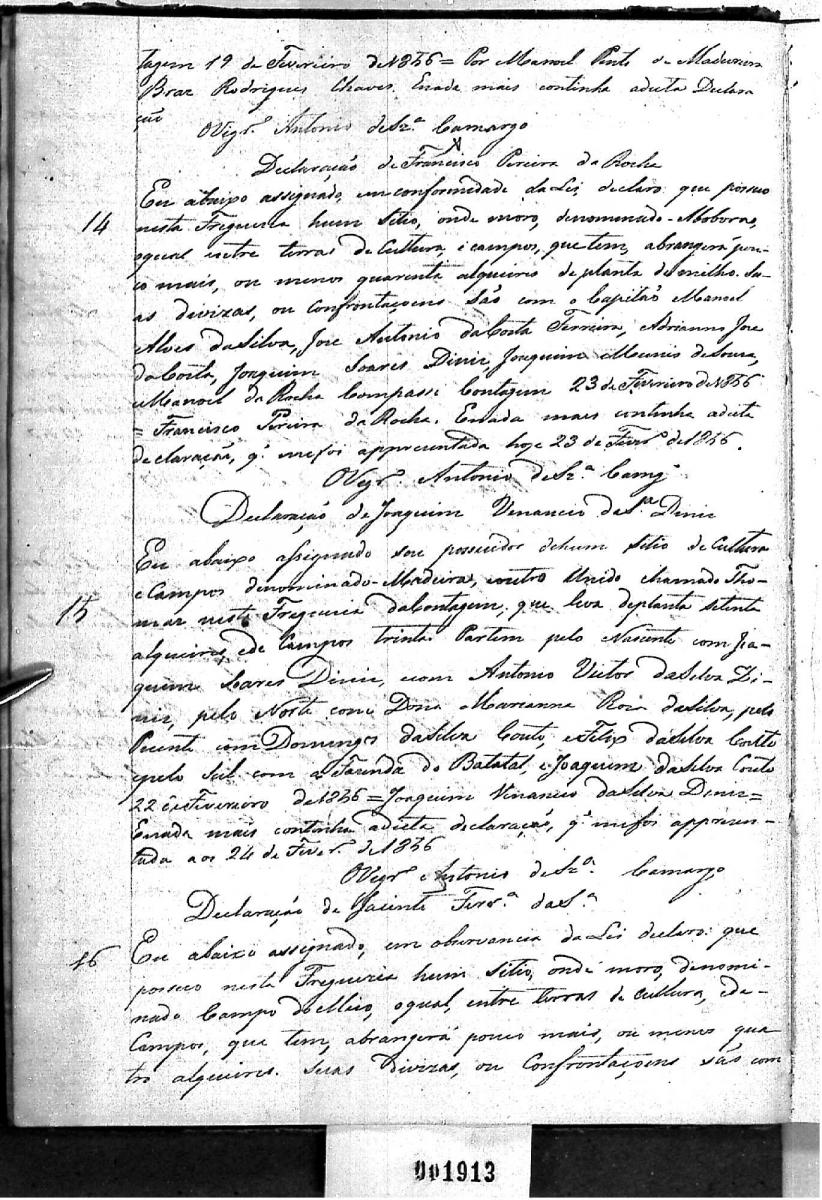 tagem 19 de Fevereiro de 1856 = Por Manoel Pinto de Madureira
Braz Rodrigues Chaves. Enada mais continha adicta Declara
ção
OVigr.º Antonio deSz.ª Camargo
Declaração de Francisco Pereira da Rocha
Eu abaixo assignado, em conformidade da Lei, declaro que possuo
14 nesta Freguezia hum Sitio, onde moro, denominado
oqual entre terras de Cultura, e campos, que tem, abrangerá pou-
co mais, ou menos quarenta alqueires de planta de milho. Su-
as divizas, ou Confrontaçoens São com o Capitaõ Manoel
Alves daSilva, Jose Antonio daCosta Ferreira, Adrianno Jose
daCosta, Joaquim Soares Diniz, Joaquim de Souza,
Manoel da Rocha Contagem 23 de Fevereiro de 1856
= Francisco Pereira da Rocha. Enada mais continha adicta
declaração, q.' mefoi appresentada hoje 23 de Fever.º de 1856.
OVigr.º Antonio deSz.ª Camg.º
Declaração de Joaquim Venancio daS.ª Diniz
Eu abaixo assignado sou possuidor dehum Sitio de Cultura
15 e Campos denominado-Madeira, eoutro Unido chamado Tho-
maz nesta Freguezia daContagem, que leva deplanta Setenta
alqueires, ede Campos trinta. Partem pelo Nascente com Joa-
quim Soares Diniz, ecom Antonio Victor daSilva Di-
niz, pelo Norte com Dona Marianna Roiz daSilva, pelo
Puente com Domingos daSilva Couto, eFelix daSilva Couto
epelo Sul com a Fazenda do Batatal, eJoaquim daSilva Couto
22 de Fevereiro de 1856 = Joaquim Venancio daSilva Diniz =
Enada mais continha adicta declaração, q.' mefoi appresen-
tada aos 24 de Fever.º de 1856
OVigr.º Antonio de Sz.ª Camargo
Declaração de Jacinto Ferr.ª daS.ª
16 Eu abaixo assignado, em observancia da Lei declaro: que
possuo nesta Freguezia hum Sitio, onde moro, denomi-
nado Campo doMeio, oqual, entre terras de cultura, ede
Campos, que tem, abrangerá pouco mais, ou menos qua
tro alqueires. Suas Divizas, ou Confrontaçoens são com
001913